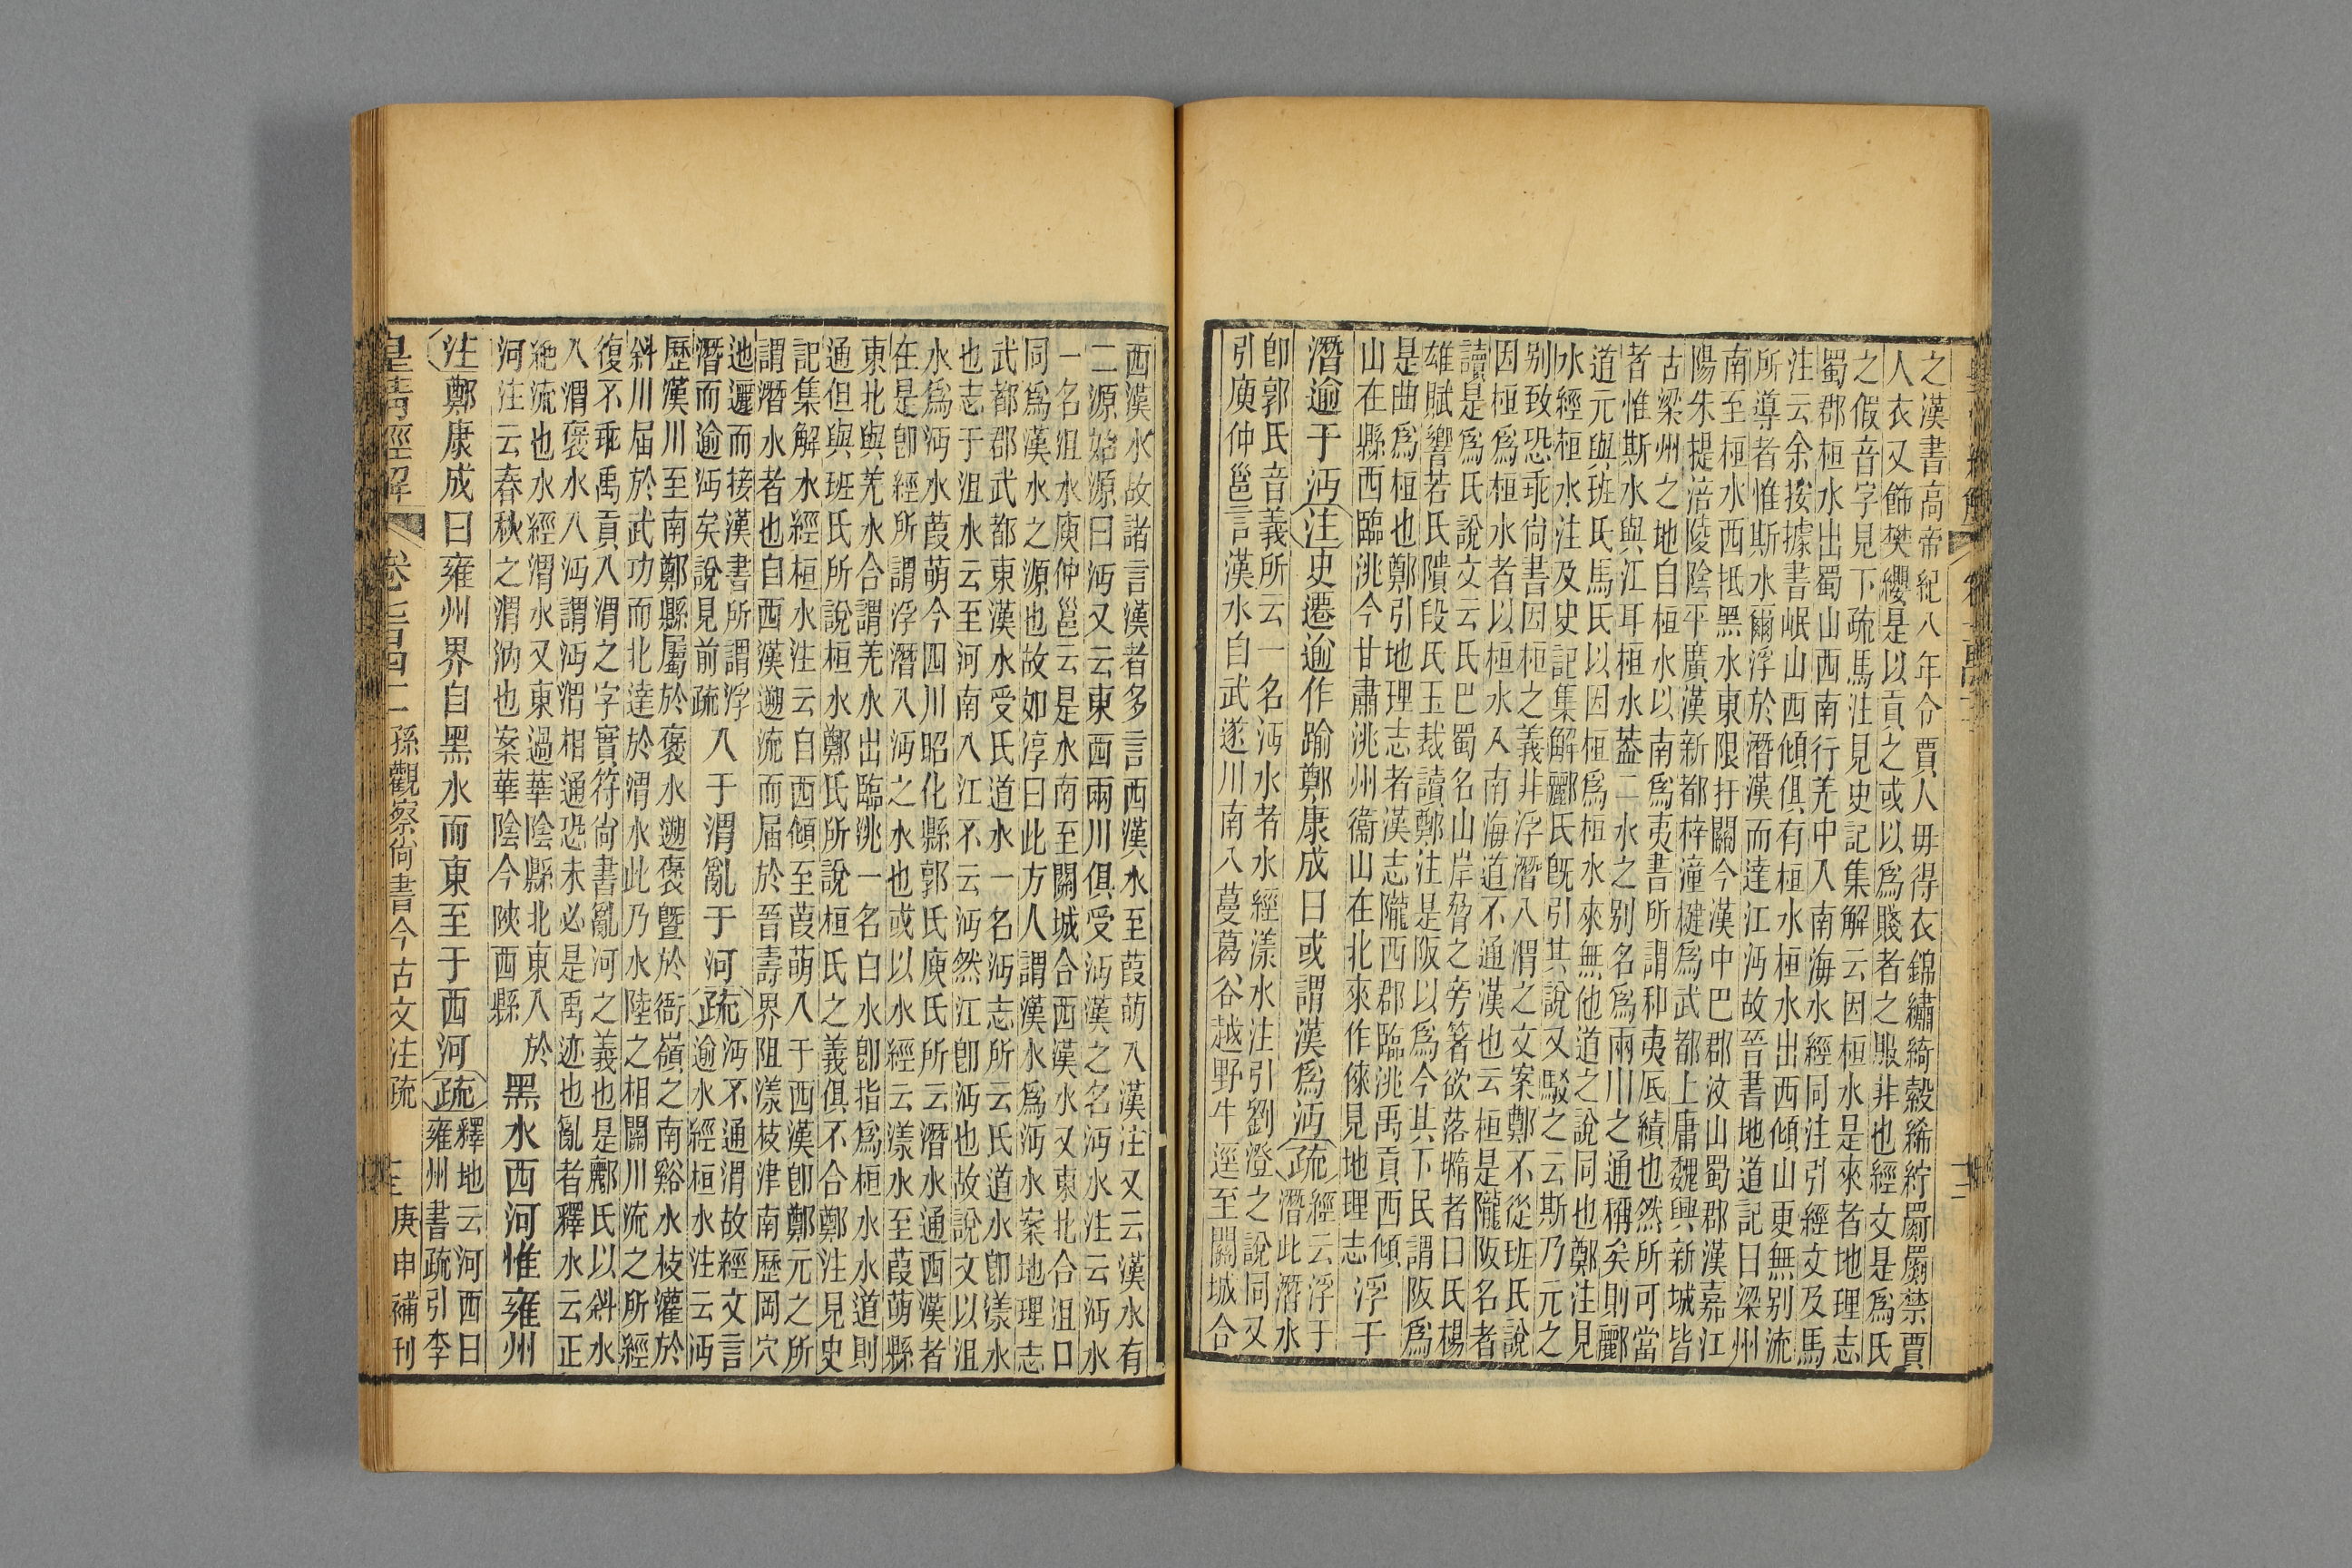 之漢書高帝紀八年令賈人毋得衣錦繡綺縠絺紵罽罽禁賈
人衣又飾樊纓是以貢之或以爲賤者之服非也經文是爲氏
之假音字見下疏馬注見史記集解云因桓水是來者地理志
蜀郡桓水出蜀山西南行羌中入南海水經同注引經文及馬
注云余按據書岷山西傾俱有桓水桓水出西傾山更無別流
所導者惟斯水爾浮於潛漢而達江沔故晉書地道記曰梁州
南至桓水西抵黑水東限扞關今漢中巴郡汶山蜀郡漢嘉江
陽朱提涪陵陰平廣漢新都梓潼犍爲武都上庸魏興新城皆
古梁州之地自桓水以南爲夷書所謂和夷厎績也然所可當
者惟斯水與江耳桓水葢二水之別名爲兩川之通稱矣則酈
道元與班氏馬氏以因桓爲桓水來無他道之說同也鄭注見
水經桓水注及史記集解酈氏旣引其說又駁之云斯乃元之
別致恐乖尙書因桓之義非浮潛入渭之文案鄭不從班氏說
因桓爲桓水者以桓水入南海道不通漢也云桓是隴阪名者
讀是爲氏說文云氏巴蜀名山岸脅之旁箸欲落㙐者曰氏楊
雄賦響若氏隤段氏玉裁讀鄭注是阪以爲今其下民謂阪爲
是曲爲桓也鄭引地理志者漢志隴西郡臨洮禹貢西傾
山在縣西臨洮今甘肅洮州衞山在北來作倈見地理志 浮于
潛逾于沔注史遷逾作踰鄭康成曰或謂漢爲沔疏經云浮于
潛此潛水
卽郭氏音義所云一名沔水者水經漾水注引劉澄之說同又
引庾仲邕言漢水自武遂川南入蔓葛谷越野牛逕至關城合
西漢水故諸言漢者多言西漢水至葭萌入漢注又云漢水有
二源始源曰沔又云東西兩川俱受沔漢之名沔水注云沔水
一名沮水庾仲邕云是水南至關城合西漢水又東北合沮口
同爲漢水之源也故如淳曰此方人謂漢水爲沔水案地理志
武都郡武都東漢水受氏道水一名沔志所云氏道水卽漾水
也志于沮水云至河南入江不云沔然江卽沔也故說文以沮
水爲沔水葭萌今四川昭化縣郭氏庾氏所云潛水通西漢者
在是卽經所謂浮潛入沔之水也或以水經云漾水至葭萌縣
東北與羌水合謂羌水出臨洮一名白水卽指爲桓水水道則
通但與班氏所說桓水鄭氏所說桓氏之義俱不合鄭注見史
記集解水經桓水注云自西傾至葭萌入于西漢卽鄭元之所
謂潛水者也自西漢遡流而屆於晉壽界阻漾枝津南歷岡穴
迆邐而接漢書所謂浮
潛而逾沔矣說見前疏 入于渭亂于河疏沔不通渭故經文言
逾水經桓水注云沔
歷漢川至南鄭縣屬於褒水遡褒暨於衙嶺之南谿水枝灌於
斜川屆於武功而北達於渭水此乃水陸之相關川流之所經
復不乖禹貢入渭之字實符尙書亂河之義也是酈氏以斜水
入渭褒水入沔謂沔渭相通恐未必是禹迹也亂者釋水云正
絶流也水經渭水又東過華陰縣北東入於
河注云春秋之渭汭也案華陰今陝西縣 黑水西河惟雍州
注鄭康成曰雍州界自黑水而東至于西河疏釋地云河西曰
雍州書疏引李
皇淸經解 卷七百四十二 孫觀察尙書今古文注疏 庚申補刊